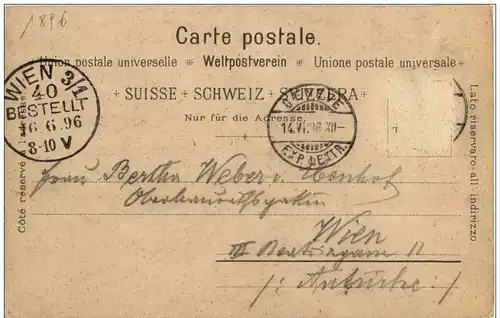 1896
Carte postale.
Union postale universelle * Weltpostverein * Unione postale universale
+ SUISSE + SCHWEIZ + SVIZZERA +
Nur für die Adresse.
Côté réservé à l'adresse.
Lato riservato all indirizzo
WIEN 3/1
40
BESTELLT
16.6.96
8-10 V
GENÈVE
14.VI.96 XII-
EXP. LETTR.
Frau Bertha Weber v. Ebenhof
Wien
III Beatrixgasse 11